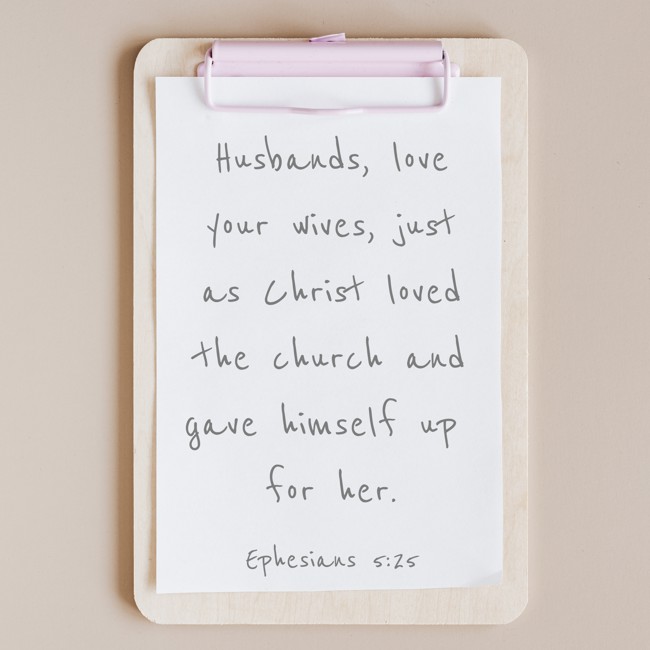 Husbands, love
your wives, just
as Christ loved
the church and
gave himself up
for her.
Ephesians 5:25